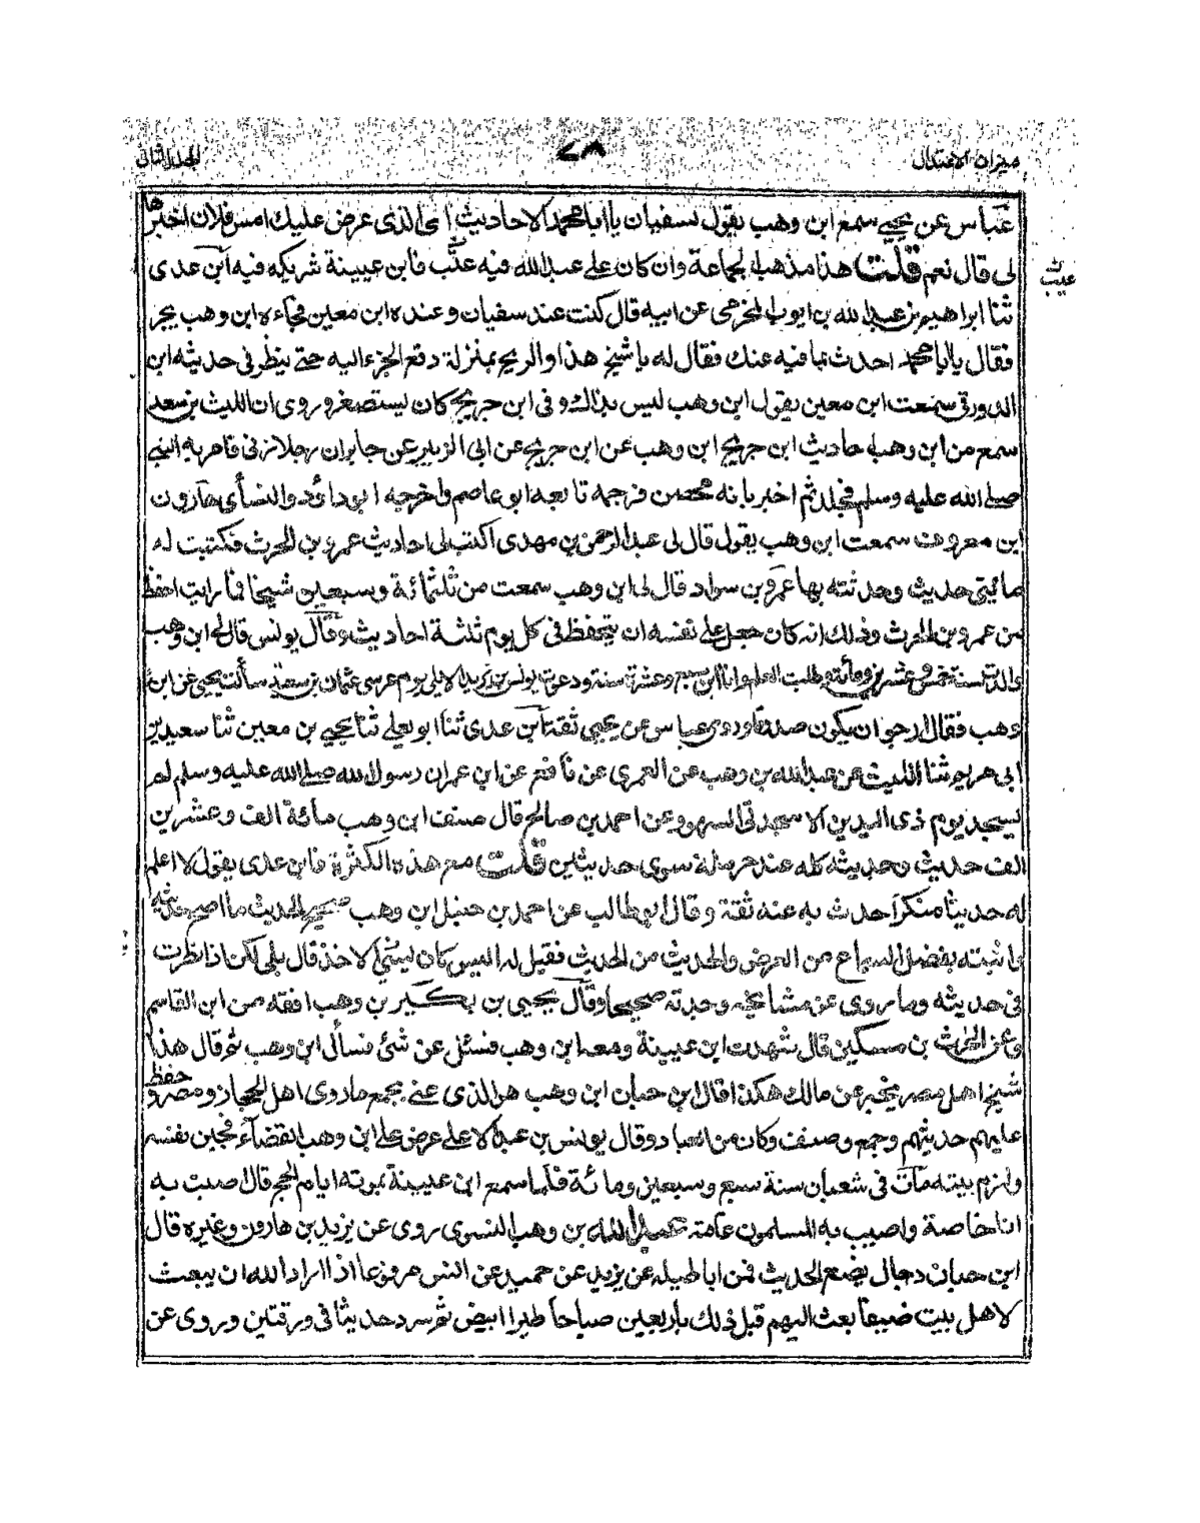 ميزان الاعتدال
٧٨
المجلد الثاني
عباس عن يحيى سمع ابن وهب يقول لسفيان يا ابا محمد الاحاديث التى الذى عرض عليك امس فلان اخبرها
لى قال نعم قلت هذا مذهب الجماعة وان كان على عبد الله فيه عتب فابن عيينة شريكه فيه ابن عدى
عيب
ثنا ابراهيم بن عبد الله بن ايوب المخرمى عن ابيه قال كنت عند سفيان وعنده ابن معين فجاءه ابن وهب بجز
فقال يا ابا محمد احدث بما فيه عنك فقال له يا شيخ هذا والريح بمنزلة دفع الجزء اليه حتى ينظر فى حديثه ابن
الدورقى سمعت ابن معين يقول ابن وهب ليس بذاك وفى ابن جريج كان يستصغر وروى ان الليث بن سعد
سمع من ابن وهب احاديث ابن جريج ابن وهب عن ابن جريج عن ابى الزبير عن جابر ان رجلا زنى فامر به النبى
صلى الله عليه وسلم فجلد ثم اخبر بانه محصن فرجمه تابعه ابو عاصم واخرجه ابو داؤد والنسائى هارون
ابن معروف سمعت ابن وهب يقول قال لى عبد الرحمن بن مهدى اكتب لى احاديث عمرو بن الحرث فكتبت له
مائتى حديث وحدثته بها عمرو بن سواد قال لى ابن وهب سمعت من ثلثمائة وسبعين شيخا فما رايت احفظ
من عمرو بن الحرث وذلك انه كان جعل على نفسه ان يتحفظ فى كل يوم ثلثة احاديث وقال يونس قال لى ابن وهب
ولدت سنة خمس وعشرين ومائة وطلبت العلم وانا ابن سبع وعشرة سنة ودعوت يونس بن يزيد الايلى يوم عرسى عثمان بن سعيد سألت يحيى عن ابن
وهب فقال ارجو ان يكون صدقا وروى عباس عن يحيى ثقة ابن عدى ثنا ابو يعلى ثنا يحيى بن معين ثنا سعيد بن
ابى مريم ثنا الليث عن عبد الله بن وهب عن العمرى عن نافع عن ابن عمر ان رسول الله صلى الله عليه وسلم لم
يسجد يوم ذى اليدين الا سجدتى السهو وعن احمد بن صالح قال صنف ابن وهب مائة الف وعشرين
الف حديث وحديثه كله عند حرملة سوى حديثين قلت مع هذه الكثرة فابن عدى يقول لا اعلم
له حديثا منكرا حدث به عنه ثقة وقال ابو طالب عن احمد بن حنبل ابن وهب صحيح الحديث ما اصح حديثه
واثبته يفضل السماع من العرض والحديث من الحديث فقيل له اليس كان يسئ الاخذ قال بلى لكن اذا نظرت
فى حديثه وما روى عن مشائخه وجدته صحيحا وقال يحيى بن بكير بن وهب افقه من ابن القاسم
وعن الحرث بن مسكين قال شهدت ابن عيينة ومعه ابن وهب فسئل عن شئ فسأل ابن وهب ثم قال هذا
شيخ اهل مصر يخبر عن مالك هكذا قال ابن حبان ابن وهب هو الذى عنى بجمع ما روى اهل الحجاز ومصر وحفظ
عليهم حديثهم وجمع وصنف وكان من العباد وقال يونس بن عبد الاعلى عرض على ابن وهب القضاء فجنن نفسه
ولزم بيته مات فى شعبان سنة سبع وسبعين ومائة فلما سمع ابن عيينة بموته ايام الحج قال اصبت به
انا خاصة واصيب به المسلمون عامة عبد الله بن وهب النسوى روى عن يزيد بن هارون وغيره قال
ابن حبان دجال يضع الحديث فمن اباطيله عن يزيد عن حميد عن انس مرفوعا اذا اراد الله ان يبعث
لاهل بيت ضيفا بعث اليهم قبل ذلك باربعين صباحا طيرا ابيض ثم سرد حديثا فى ورقتين وروى عن